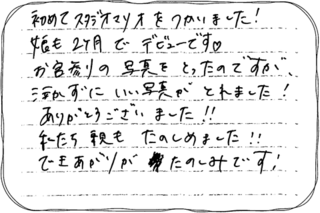 初めてスタジオマリオをつかいました!
娘も2ヶ月でデビューです♡
お宮参りの写真をとったのですが、
泣かずにいい写真がとれました!
ありがとうございました!!
私たち親もたのしめました!!
できあがりがたのしみです!